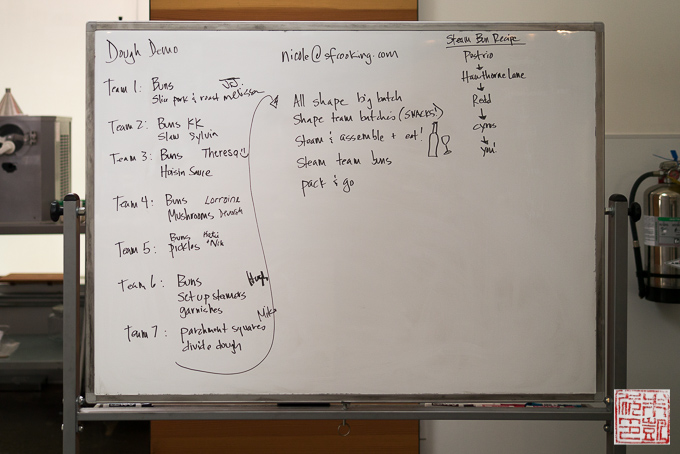 Dough Demo
Team 1: Buns JJ
Slice pork & roast melissa
Team 2: Buns KK
Slaw Sylvia
Team 3: Buns Theresa
Hoisin Sauce
Team 4: Buns Lorraine
Mushrooms
Team 5: Buns
pickles + Nik
Team 6: Buns Hugh
Set up steamers
garnishes
Team 7: parchment squares Mike
divide dough
nicole@sfcooking.com
All shape big batch
Shape team batches (SNACKS!)
Steam & assemble + eat!
Steam team buns
pack & go
Steam Bun Recipe
Postrio
Hawthorne lane
Redd
Cyrus
you!